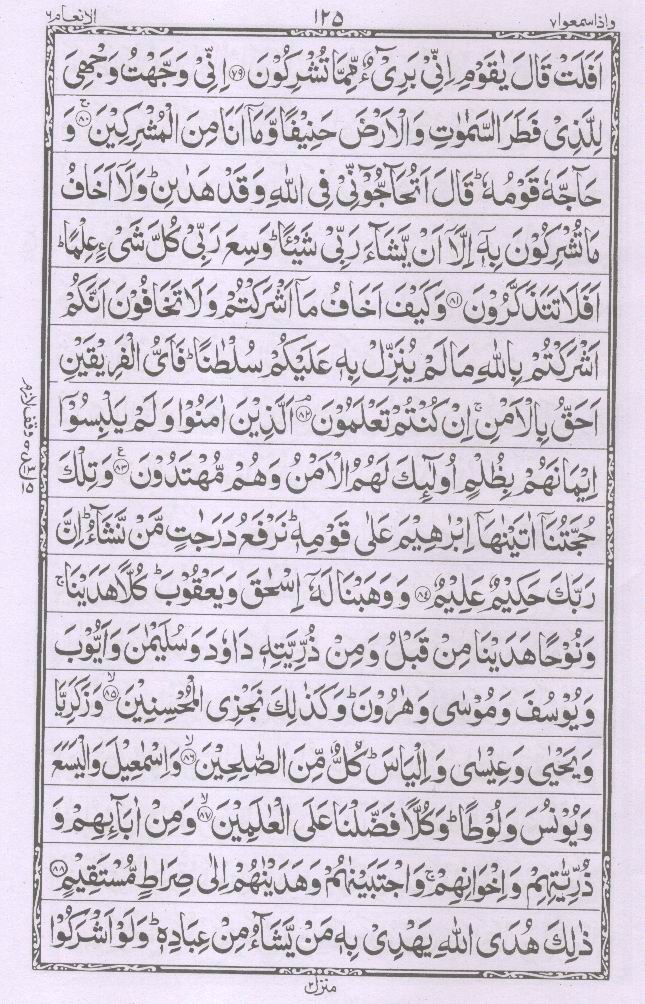 واذاسمعوا۷ ۱۲۵ الانعام۶
اَفَلَتْ قَالَ يٰقَوْمِ اِنِّیْ بَرِیْٓءٌ مِّمَّا تُشْرِكُوْنَ ۷۹ اِنِّیْ وَجَّهْتُ وَجْهِیَ
لِلَّذِیْ فَطَرَ السَّمٰوٰتِ وَالْاَرْضَ حَنِيْفًا وَّمَآ اَنَا مِنَ الْمُشْرِكِيْنَ ۚ ۸۰ وَ
حَآجَّهٗ قَوْمُهٗ ؕ قَالَ اَتُحَآجُّوْٓنِّیْ فِی اللّٰهِ وَقَدْ هَدٰىنِ ؕ وَلَآ اَخَافُ
مَا تُشْرِكُوْنَ بِهٖٓ اِلَّآ اَنْ يَّشَآءَ رَبِّیْ شَيْئًا ؕ وَسِعَ رَبِّیْ كُلَّ شَیْءٍ عِلْمًا ؕ
اَفَلَا تَتَذَكَّرُوْنَ ۸۱ وَكَيْفَ اَخَافُ مَآ اَشْرَكْتُمْ وَلَا تَخَافُوْنَ اَنَّكُمْ
اَشْرَكْتُمْ بِاللّٰهِ مَا لَمْ يُنَزِّلْ بِهٖ عَلَيْكُمْ سُلْطٰنًا ؕ فَاَیُّ الْفَرِيْقَيْنِ
اَحَقُّ بِالْاَمْنِ ۚ اِنْ كُنْتُمْ تَعْلَمُوْنَ ۘ ۸۲ اَلَّذِيْنَ اٰمَنُوْا وَلَمْ يَلْبِسُوْٓا
اِيْمَانَهُمْ بِظُلْمٍ اُولٰٓئِكَ لَهُمُ الْاَمْنُ وَهُمْ مُّهْتَدُوْنَ ۸۳ ع وَتِلْكَ
حُجَّتُنَآ اٰتَيْنٰهَآ اِبْرٰهِيْمَ عَلٰی قَوْمِهٖ ؕ نَرْفَعُ دَرَجٰتٍ مَّنْ نَّشَآءُ ؕ اِنَّ
رَبَّكَ حَكِيْمٌ عَلِيْمٌ ۸۴ وَوَهَبْنَا لَهٗٓ اِسْحٰقَ وَيَعْقُوْبَ ؕ كُلًّا هَدَيْنَا ۚ
وَنُوْحًا هَدَيْنَا مِنْ قَبْلُ وَمِنْ ذُرِّيَّتِهٖ دَاوٗدَ وَسُلَيْمٰنَ وَاَيُّوْبَ
وَيُوْسُفَ وَمُوْسٰی وَهٰرُوْنَ ؕ وَكَذٰلِكَ نَجْزِی الْمُحْسِنِيْنَ ۙ ۸۵ وَزَكَرِيَّا
وَيَحْيٰی وَعِيْسٰی وَاِلْيَاسَ ؕ كُلٌّ مِّنَ الصّٰلِحِيْنَ ۙ ۸۶ وَاِسْمٰعِيْلَ وَالْيَسَعَ
وَيُوْنُسَ وَلُوْطًا ؕ وَكُلًّا فَضَّلْنَا عَلَی الْعٰلَمِيْنَ ۙ ۸۷ وَمِنْ اٰبَآئِهِمْ وَ
ذُرِّيّٰتِهِمْ وَاِخْوَانِهِمْ ۚ وَاجْتَبَيْنٰهُمْ وَهَدَيْنٰهُمْ اِلٰی صِرَاطٍ مُّسْتَقِيْمٍ ۸۸
ذٰلِكَ هُدَی اللّٰهِ يَهْدِیْ بِهٖ مَنْ يَّشَآءُ مِنْ عِبَادِهٖ ؕ وَلَوْ اَشْرَكُوْا
وقف لازم
منزل۲